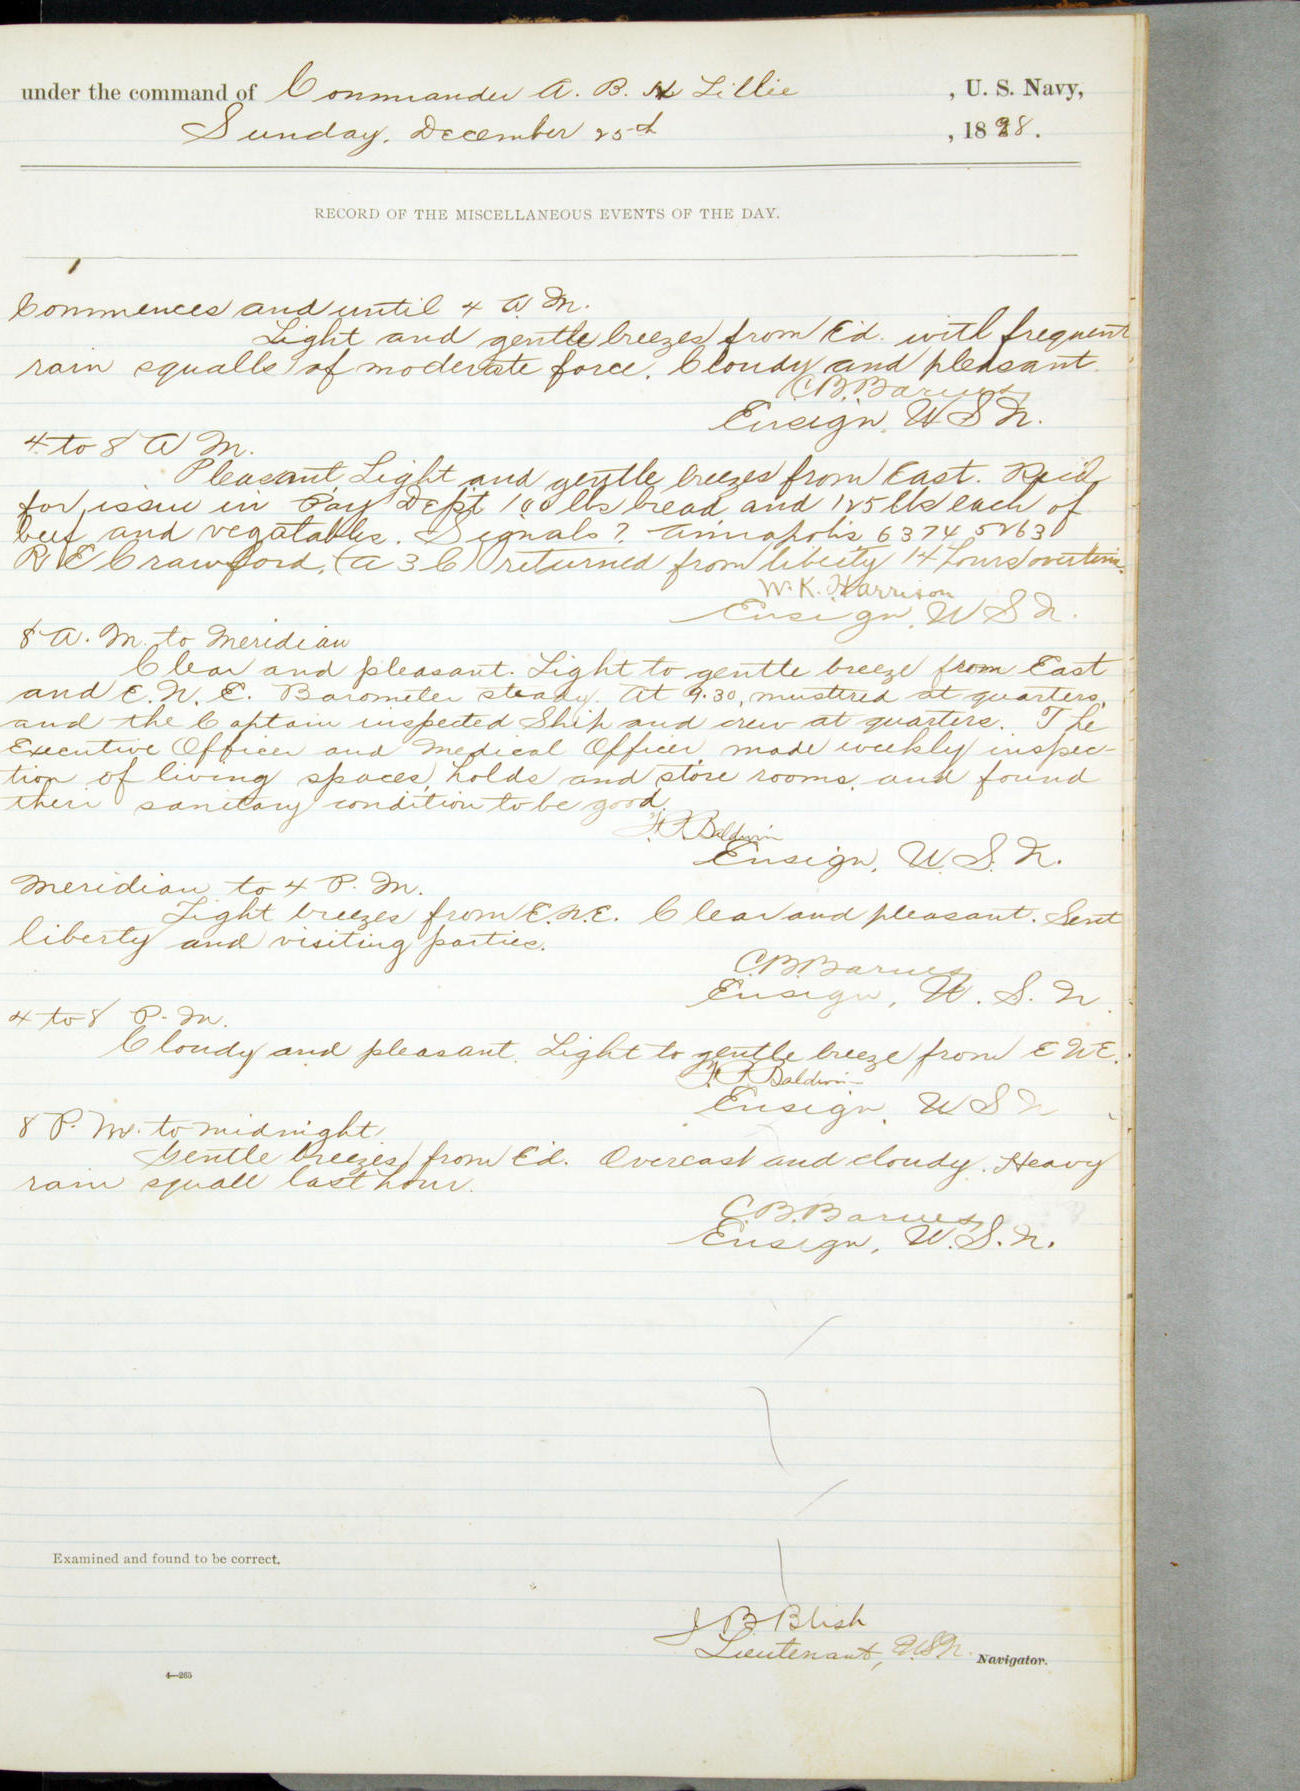 under the command of Commander A. B. H. Lillie , U. S. Navy,
Sunday, December 25th , 1898.
RECORD OF THE MISCELLANEOUS EVENTS OF THE DAY.
Commences and until 4 A. M.
Light and gentle breezes from E'd. with frequent
rain squalls of moderate force. Cloudy and pleasant.
C.B. Barnes
Ensign, U S N.
4 to 8 A M.
Pleasant, Light and gentle breezes from East. Rec'd
for issue in Pay Dept 100 lbs bread and 125 lbs each of
beef and vegatables. Signals? Annapolis 6374, 5263
R E Crawford, (A 3 C) returned from liberty 14 hours overtime.
W. K. Harrison
Ensign, U S N.
8 A. M. to Meridian
Clear and pleasant. Light to gentle breeze from East
and E. N. E. Barometer steady. At 9.30, mustered at quarters,
and the Captain inspected Ship and crew at quarters. The
Executive Officer and Medical Officer made weekly inspec-
tion of living spaces, holds and store rooms, and found
their sanitary condition to be good.
F. P. Baldwin
Ensign, U. S. N.
Meridian to 4 P. M.
Light breezes from E.N.E. Clear and pleasant. Sent
liberty and visiting parties.
C.B. Barnes
Ensign, U. S. N.
4 to 8 P. M.
Cloudy and pleasant. Light to gentle breeze from E N E.
F. P. Baldwin
Ensign, U S N
8 P. M. to midnight
Gentle breezes from E'd. Overcast and cloudy. Heavy
rain squall last hour.
C.B. Barnes
Ensign, U. S. N.
Examined and found to be correct.
J B Blish
Lieutenant, U.S.N. Navigator.
4—265